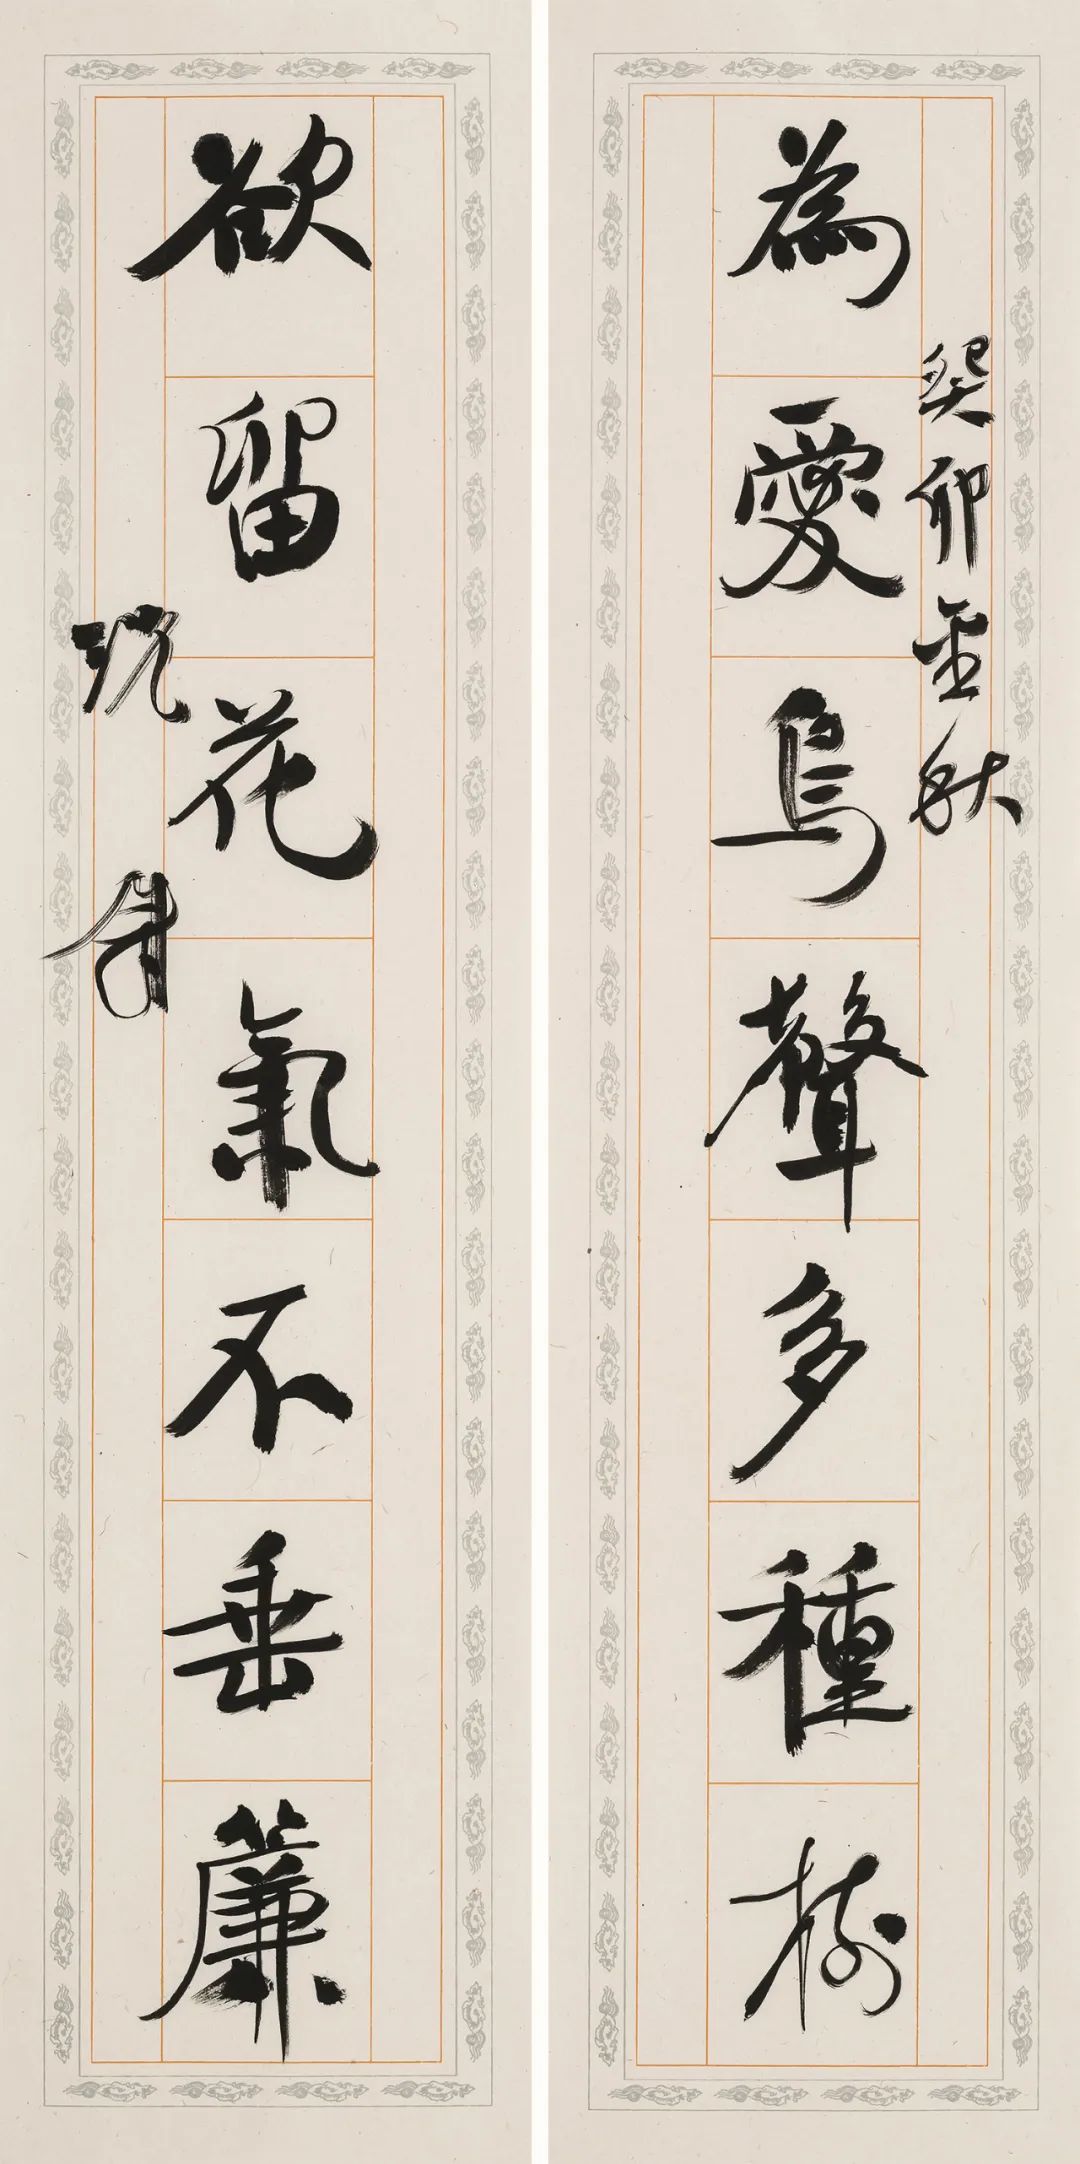 為愛鳥聲多種樹
癸卯金秋
欲留花氣不垂簾